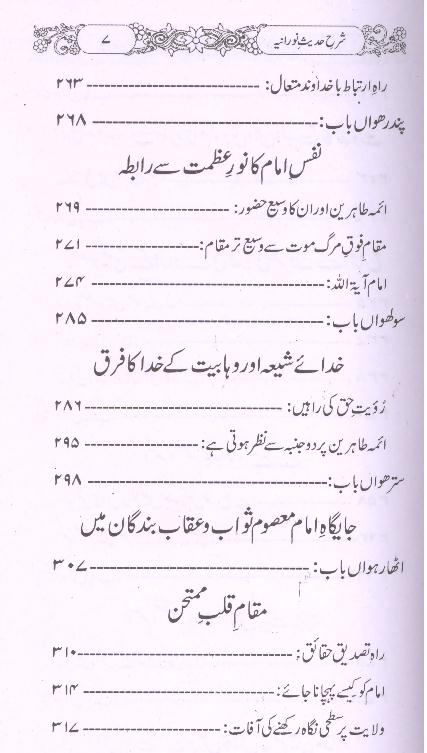 شرح حدیث نورانیہ ۷
راہ ارتباط با خداوند متعال: ---------------------------- ۲۶۳
پندرھواں باب: ---------------------------- ۲۶۸
نفسِ امام کا نورِ عظمت سے رابطہ
ائمہ طاہرین اور ان کا وسیع حضور: ---------------------------- ۲۶۹
مقام فوقِ مرگ موت سے وسیع تر مقام: ---------------------------- ۲۷۱
امام آیۃ اللہ: ---------------------------- ۲۷۴
سولھواں باب: ---------------------------- ۲۸۵
خدائے شیعہ اور وہابیت کے خدا کا فرق
رُؤیتِ حق کی راہیں: ---------------------------- ۲۸۶
ائمہ طاہرین پر دو جنبہ سے نظر ہوتی ہے: ---------------------------- ۲۹۵
سترھواں باب: ---------------------------- ۲۹۸
جایگاہِ امام معصوم ثواب و عقاب بندگان میں
اٹھارہواں باب: ---------------------------- ۳۰۷
مقامِ قلبِ ممتحن
راہ تصدیق حقائق: ---------------------------- ۳۱۰
امام کو کیسے پہچانا جائے: ---------------------------- ۳۱۴
ولایت پر سطحی نگاہ رکھنے کی آفات: ---------------------------- ۳۱۷